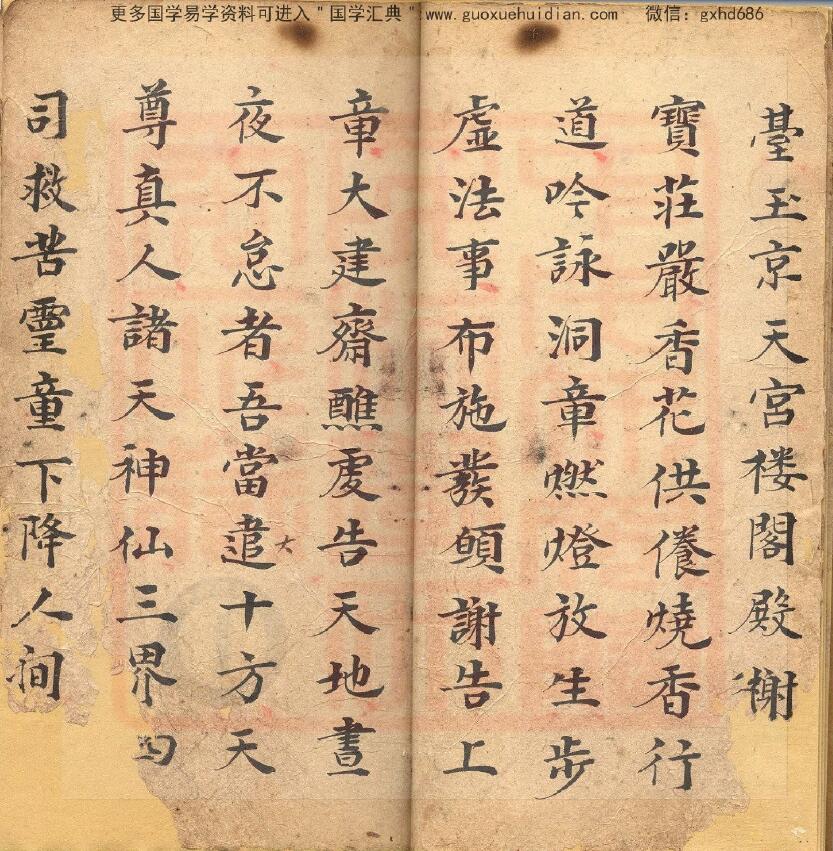 更多国学易学资料可进入＂国学汇典＂:www.guoxuehuidian.com 微信：gxhd686
臺玉京天宮楼閣殿榭
寶莊嚴香花供養燒香行
道吟詠洞章燃燈放生步
虛法事布施發願謝告上
章大建齋醮虔告天地晝
夜不怠者吾當遣大十方天
尊真人諸天神仙三界四
司救苦靈童下降人间